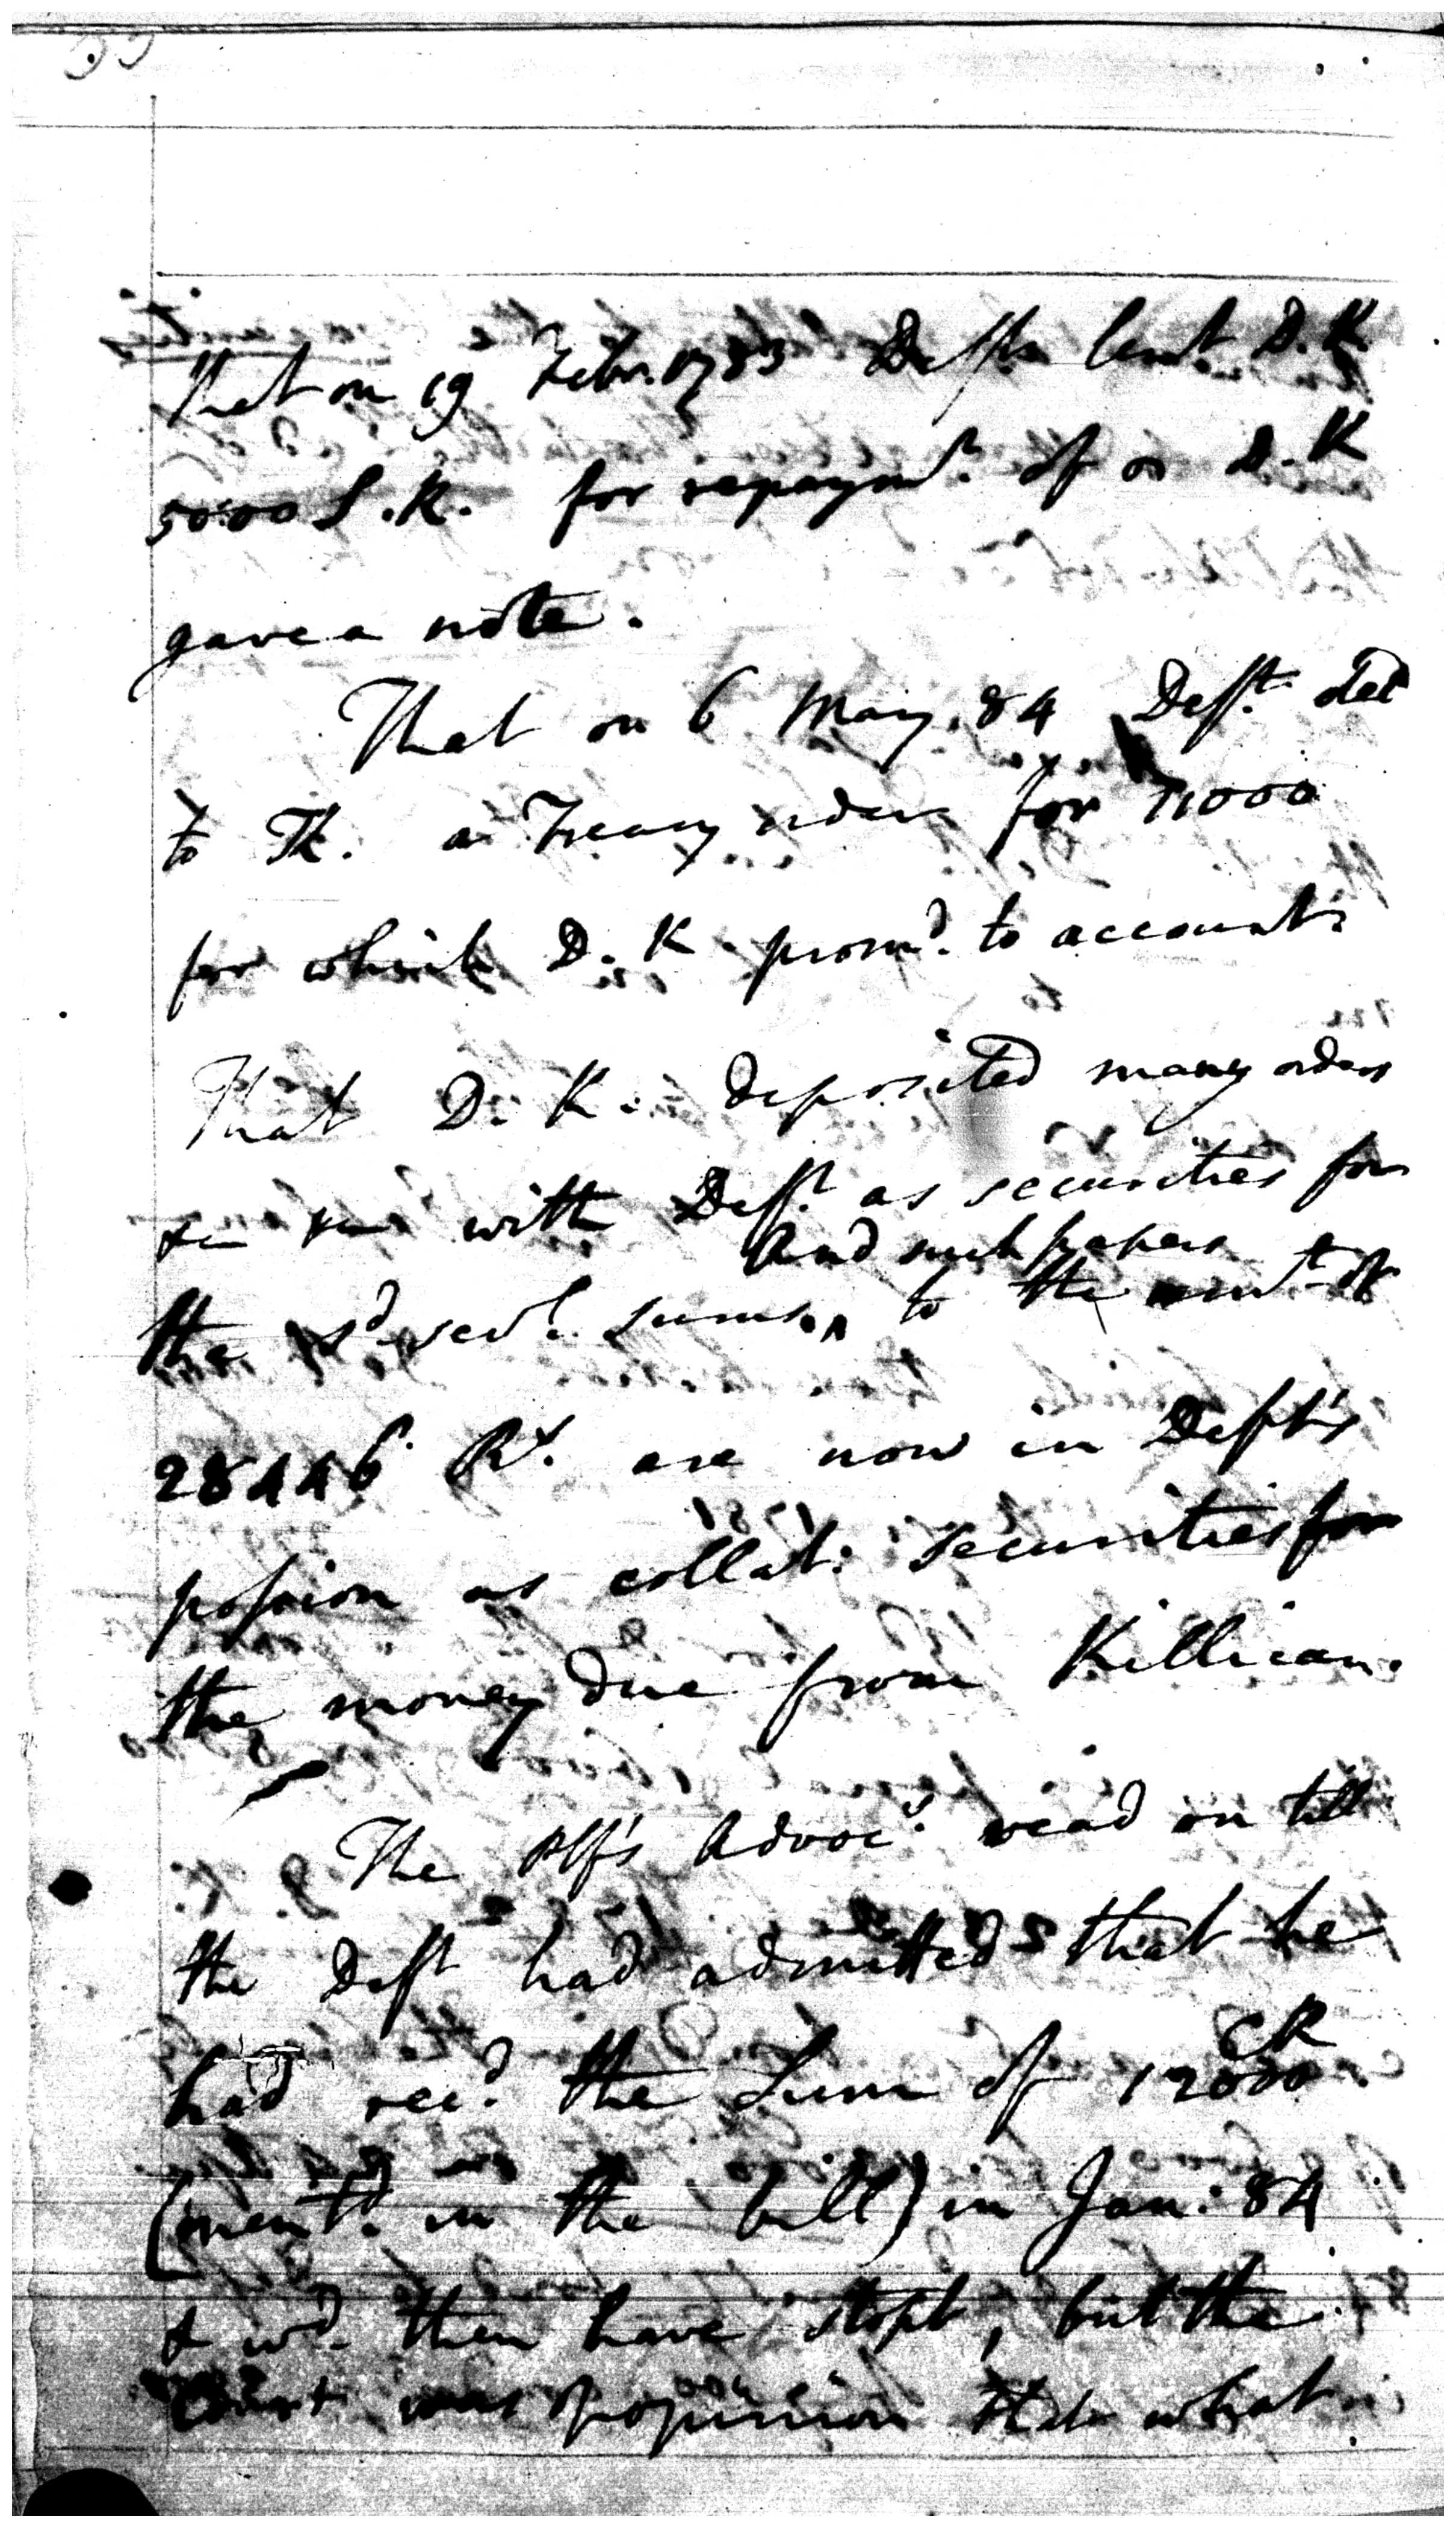 That on 19 Febr. 1783 Deft lent D. K.
5000 S. R. for repaym.t of D. K
gave a note.
That on 6 May. 84 Deft. del
to K. a Treasy order for 11000
for which D. K prom.d to account.
That D. K. deposited many orders
with Deft. as securities for
And such papers
the s.d sev.l sums ‸ to the am.t of
28446 R.s are now in Deft's
possion as collat: securities for
the money due from Killican.
The Plf's Advoc.s read on till
the Deft had admitted that he
CR
had rec.d the Sum of 12000.
(ment.d in the bill) in Jan: 84
& w.d then have stopt, but the
Court was of opinion that what